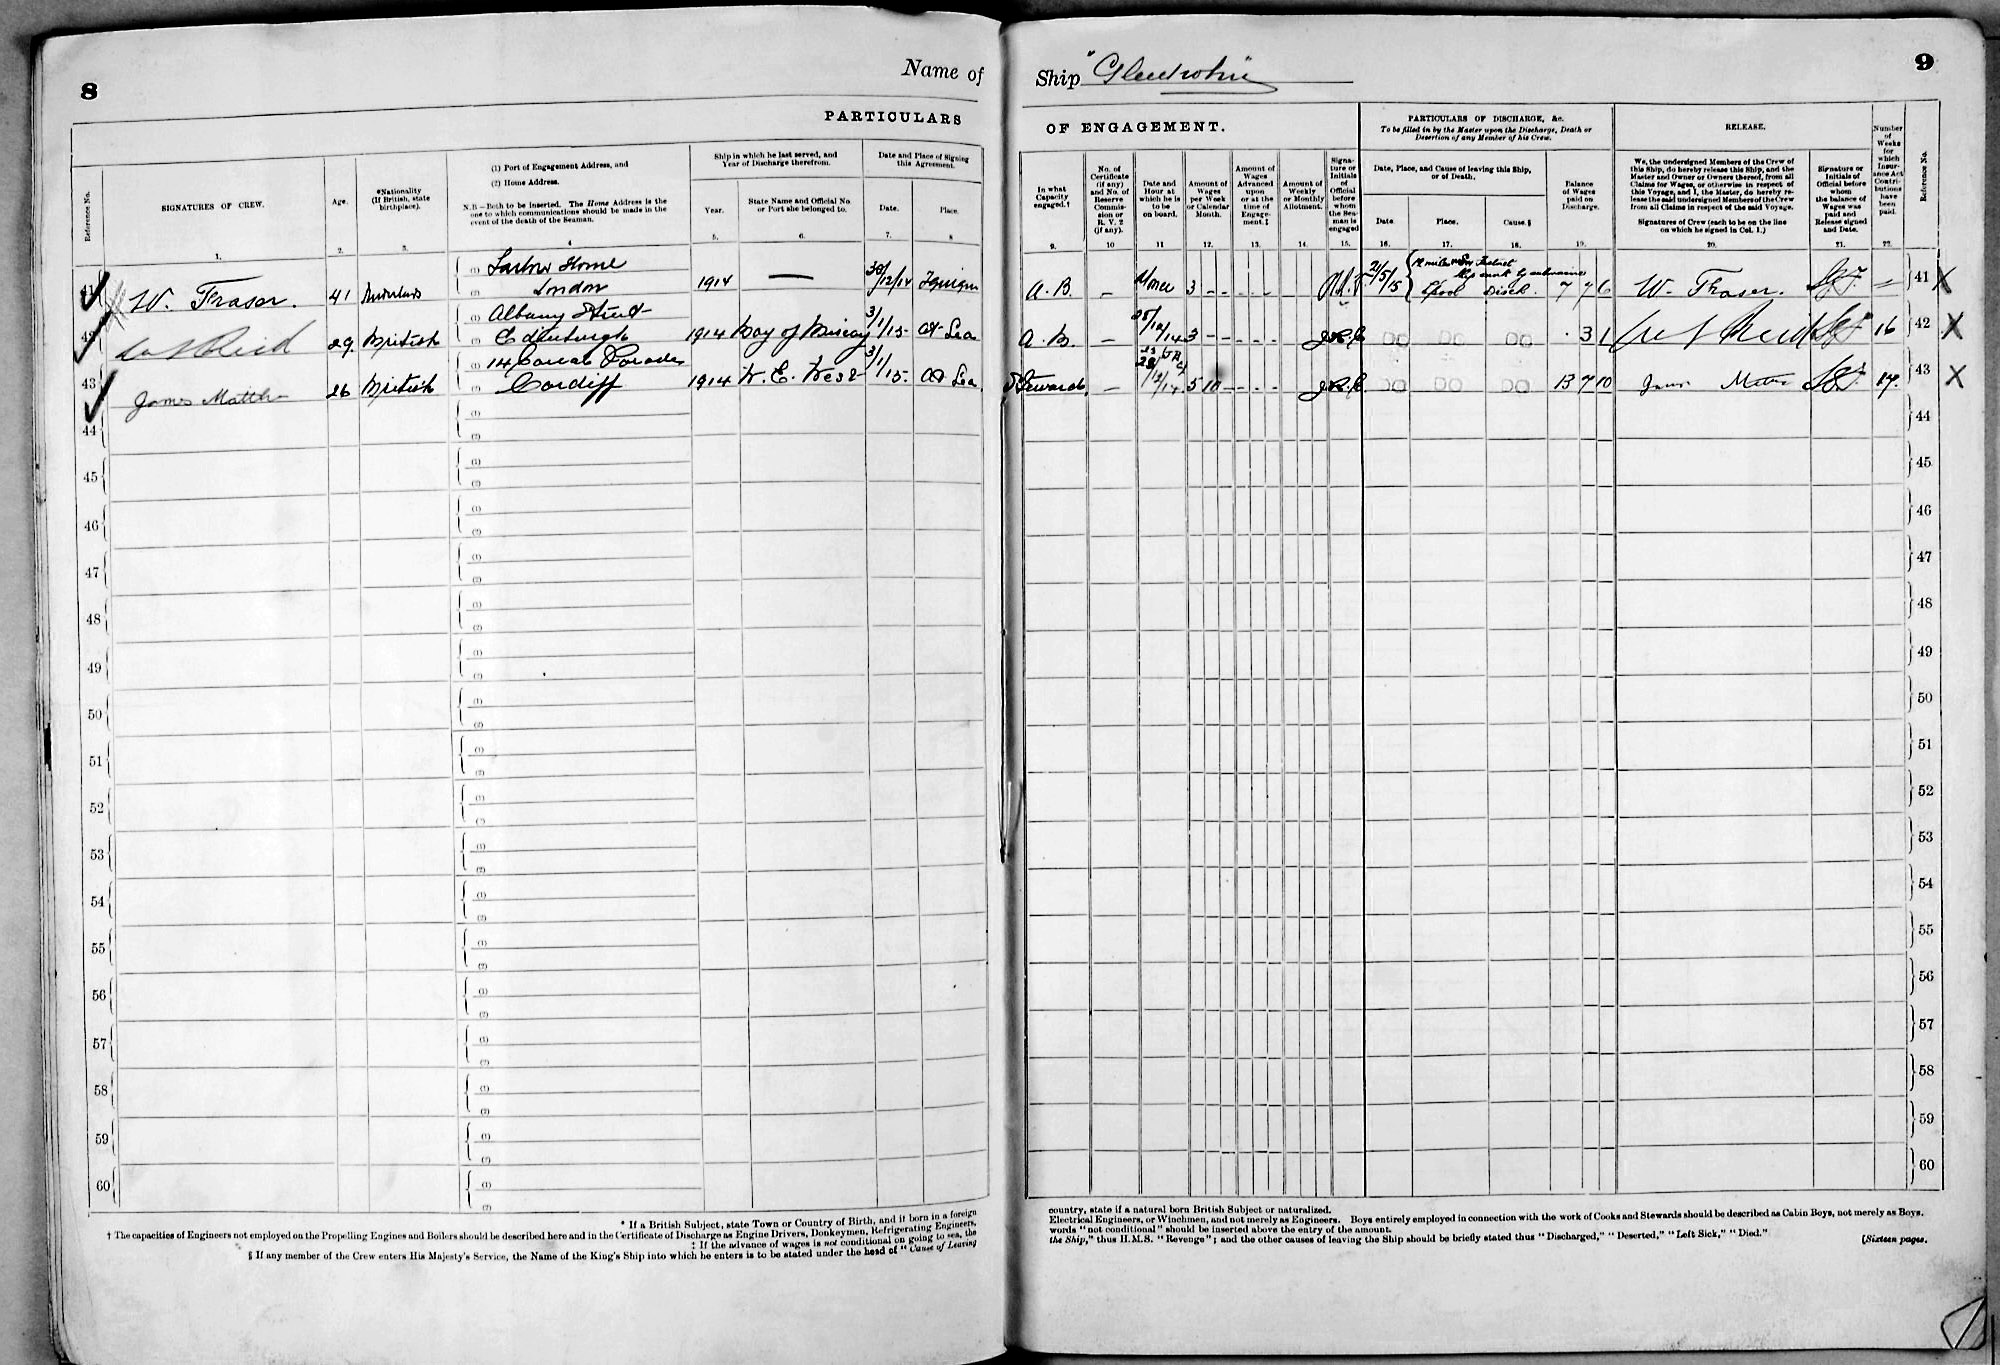 8
Name of
PARTICULARS
Reference No.
SIGNATURES OF CREW.
Age.
*Nationality
(If British, state
birthplace).
(1) Port of Engagement Address, and
(2) Home Address.
N.B—Both to be inserted. The Home Address is the
one to which communications should be made in the
event of the death of the Seaman.
Ship in which he last served, and
Year of Discharge therefrom.
Year.
State Name and Official No
or Port she belonged to.
Date and Place of Signing
this Agreement.
Date.
Place.
1. 2. 3. 4 5. 6. 7. 8
41 W. Fraser. 41
(1) Home
(2) London 1914 — 30/12/14
42 Reid 29
(1) Albany Street
(2) Edinburgh
British 1914 Bay of Biscay 3/1/15 At Sea
43 James 26 British
(1) 14
(2) Cardiff 1914 W. E. 3/1/15. At Sea
44 (1) (2)
45 (1) (2)
46 (1) (2)
47 (1) (2)
48 (1) (2)
49 (1) (2)
50 (1) (2)
51 (1) (2)
52 (1) (2)
53 (1) (2)
54 (1) (2)
55 (1) (2)
56 (1) (2)
57 (1) (2)
58 (1) (2)
59 (1) (2)
60 (1) (2)
* If a British Subject, state Town or Country of Birth, and if born in a foreign
† The capacities of Engineers not employed on the Propelling Engines and Boilers should be described here and in the Certificate of Discharge as Engine Drivers, Donkeymen, Refrigerating Engineers,
‡ If the advance of wages is not conditional on going to sea, the
§ If any member of the Crew enters His Majesty's Service, the Name of the King's Ship into which he enters is to be stated under the head of "Cause of Leaving
Ship
9
OF ENGAGEMENT.
PARTICULARS OF DISCHARGE, &c.
To be filled in by the Master upon the Discharge, Death or
Desertion of any Member of his Crew.
RELEASE.
In what
Capacity
engaged.†
No. of
Certificate
(if any)
and No. of
Reserve
Commis-
sion or
R. V. 2
(if any).
Date and
Hour at
which he is
to be
on board.
Amount of
Wages
per Week
or Calendar
Month.
Amount of
Wages
Advanced
upon
or at the
time of
Engage-
ment.‡
Amount of
Weekly
or Monthly
Allotment.
Signa-
ture or
Initials
of
Official
before
whom
the Sea-
man is
engaged
Date, Place, and Cause of leaving this Ship,
or of Death.
Date.
Place.
Cause.§
Balance
of Wages
paid on
Discharge.
We, the undersigned Members of the Crew of
this Ship, do hereby release this Ship, and the
Master and Owner or Owners thereof, from all
Claims for Wages, or otherwise in respect of
this Voyage, and I, the Master, do hereby re-
lease the said undersigned Members of the Crew
from all Claims in respect of the said Voyage.
Signatures of Crew (each to be on the line
on which he signed in Col. 1.)
Signature or
Initials of
Official before
whom
the balance of
Wages was
paid and
Release signed
and Date.
Number
of
Weeks
for
which
Insur-
ance Act
Contri-
butions
have
been
paid.
Reference No.
9. 10 11 12. 13. 14. 15. 16. 17. 18. 19. 20. 21. 22.
A.B. — 3 - - 2/5/15 Disch. 7 7 6 W. Fraser. 41 X
A.B. — 3 - - 3 1 Reid 16 42 X
Steward — 5 10 13 7 10 17. 43 X
44
45
46
47
48
49
50
51
52
53
54
55
56
57
58
59
60
country, state if a natural born British Subject or naturalized.
Electrical Engineers, or Winchmen, and not merely as Engineers. Boys entirely employed in connection with the work of Cooks and Stewards should be described as Cabin Boys, not merely as Boys.
words "not conditional" should be inserted above the entry of the amount.
the Ship," thus H.M.S. "Revenge"; and the other causes of leaving the Ship should be briefly stated thus "Discharged," "Deserted," "Left Sick," "Died."
(Sixteen pages.